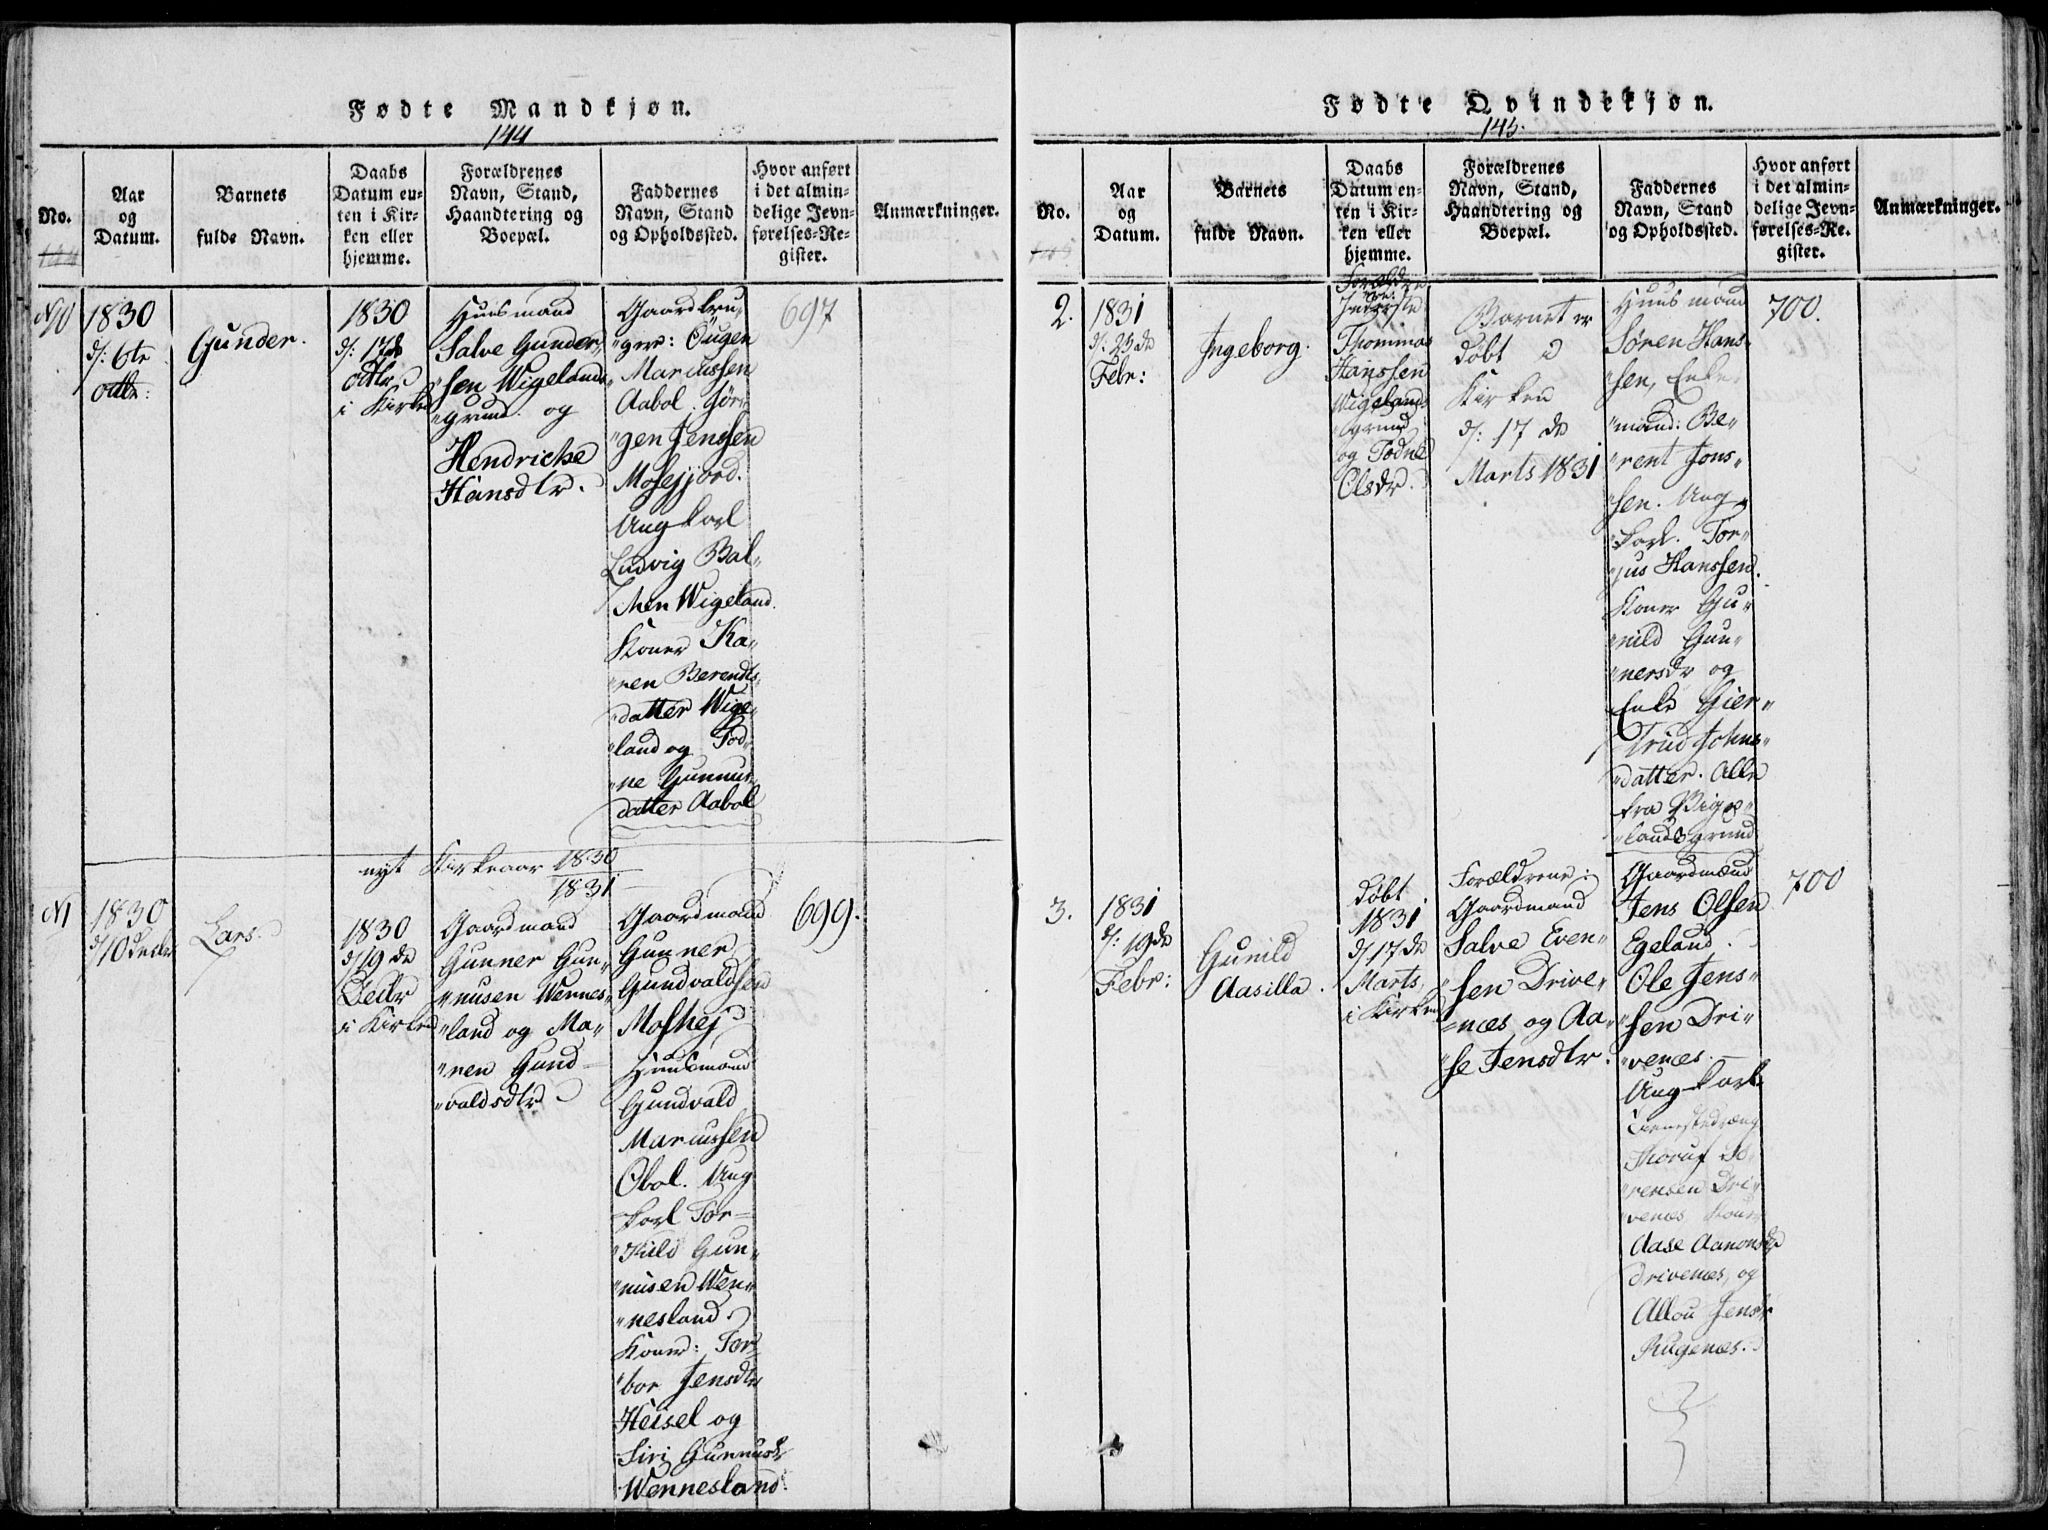 Fødte Mandkjøn.
144
No.
Aar
og
Datum.
Barnets
fulde Navn.
Daabs
Datum en-
ten i Kir-
ken eller
hjemme.
Forældrenes
Navn, Stand,
Haandtering og
Boepæl.
Faddernes
Navn, Stand
og Opholdssted.
Hvor anført
i det almin-
delige Jevn-
førelses-Re-
gister.
Anmærkninger.
144
N10
1830
d: 6te
Octbr:
Gunder.
1830
d: 17de
Octbr
i Kirken
Huusmand
Salve Gunder-
sen Wigelands
"grund. og
Hendricke
Hansdtr.
Gaardbru-
"gere:
Marcussen
Aabol. Jør-
"gen Jenssen
Mosejjord.
Ungkarl
Ludvig Bal-
Wigeland.
Koner Ka-
"ren Berendts-
"datter Wige-
"land og Tod-
"ne Gunnus-
datter Aabol
697
nyt Kirkeaar 1830
1831
N1
1830
d/10 Decbr
Lars.
1830
d/19 de
Decbr
i Kirken
Gaardmand
Gunner Gun-
"nusen Wennes-
"land og Ma-
"ren Gund-
"valdsdtr
Gaardmand
Gunner
Gundvaldsen
Moshej
Huusmand
Gundvald
Marcussen
Obol. Ung-
karl Tor-
"kild Gun-
"nusen Wen-
"nesland.
Koner: Tor-
"bor Jensdtr
Heisel og
Siri Gunnusdr
Wennesland.
699.
Fødte Qvindekjøn.
145.
No.
Aar
og
Datum.
Barnets
fulde Navn.
Daabs
Datum en-
ten i Kir-
ken eller
hjemme.
Forældrenes
Navn, Stand,
Haandtering og
Boepæl.
Faddernes
Navn, Stand
og Opholdssted.
Hvor anført
i det almin-
delige Jevn-
førelses-Re-
gister.
Anmærkninger.
145
2.
1831
d: 23 de
Febr:
Ingeborg.
Forældre
Inderste
Thommas
Hanssen
Wigelands
grund
og Todne
Olsdr.
Barnet er
døbt i
Kirken
d: 17 de
Marts 1831
Huusmand
Søren Hans-
"sen, Enke-
"mand: Be-
"rent Jons-
"sen. Ung-
"karl. Tor-
"jus Hanssen.
Koner Gu-
"nild Gun-
"nersdr og
Enke Gier-
"trud Johns-
"datter. Alle
fra Vige-
"lands grund
700.
3.
1831
d: 19de
Febr:
Gunild
Aasilla.
døbt
1831
d/17 de
Marts,
i Kirken
Forældrene:
Gaardmand
Salve Even-
"sen Drive-
"næs og Aa-
"se Jensdtr.
Gaardmænd
Jens Olsen
Egeland.
Ole Jens-
"sen Dri-
"venæs.
Ungkarl.
Tjenestedræng
"rensen Dri-
"venæs Koner
Aase Aanonsdr
Drivenæs, og
Allou Jensdr
Rugenæs.
700